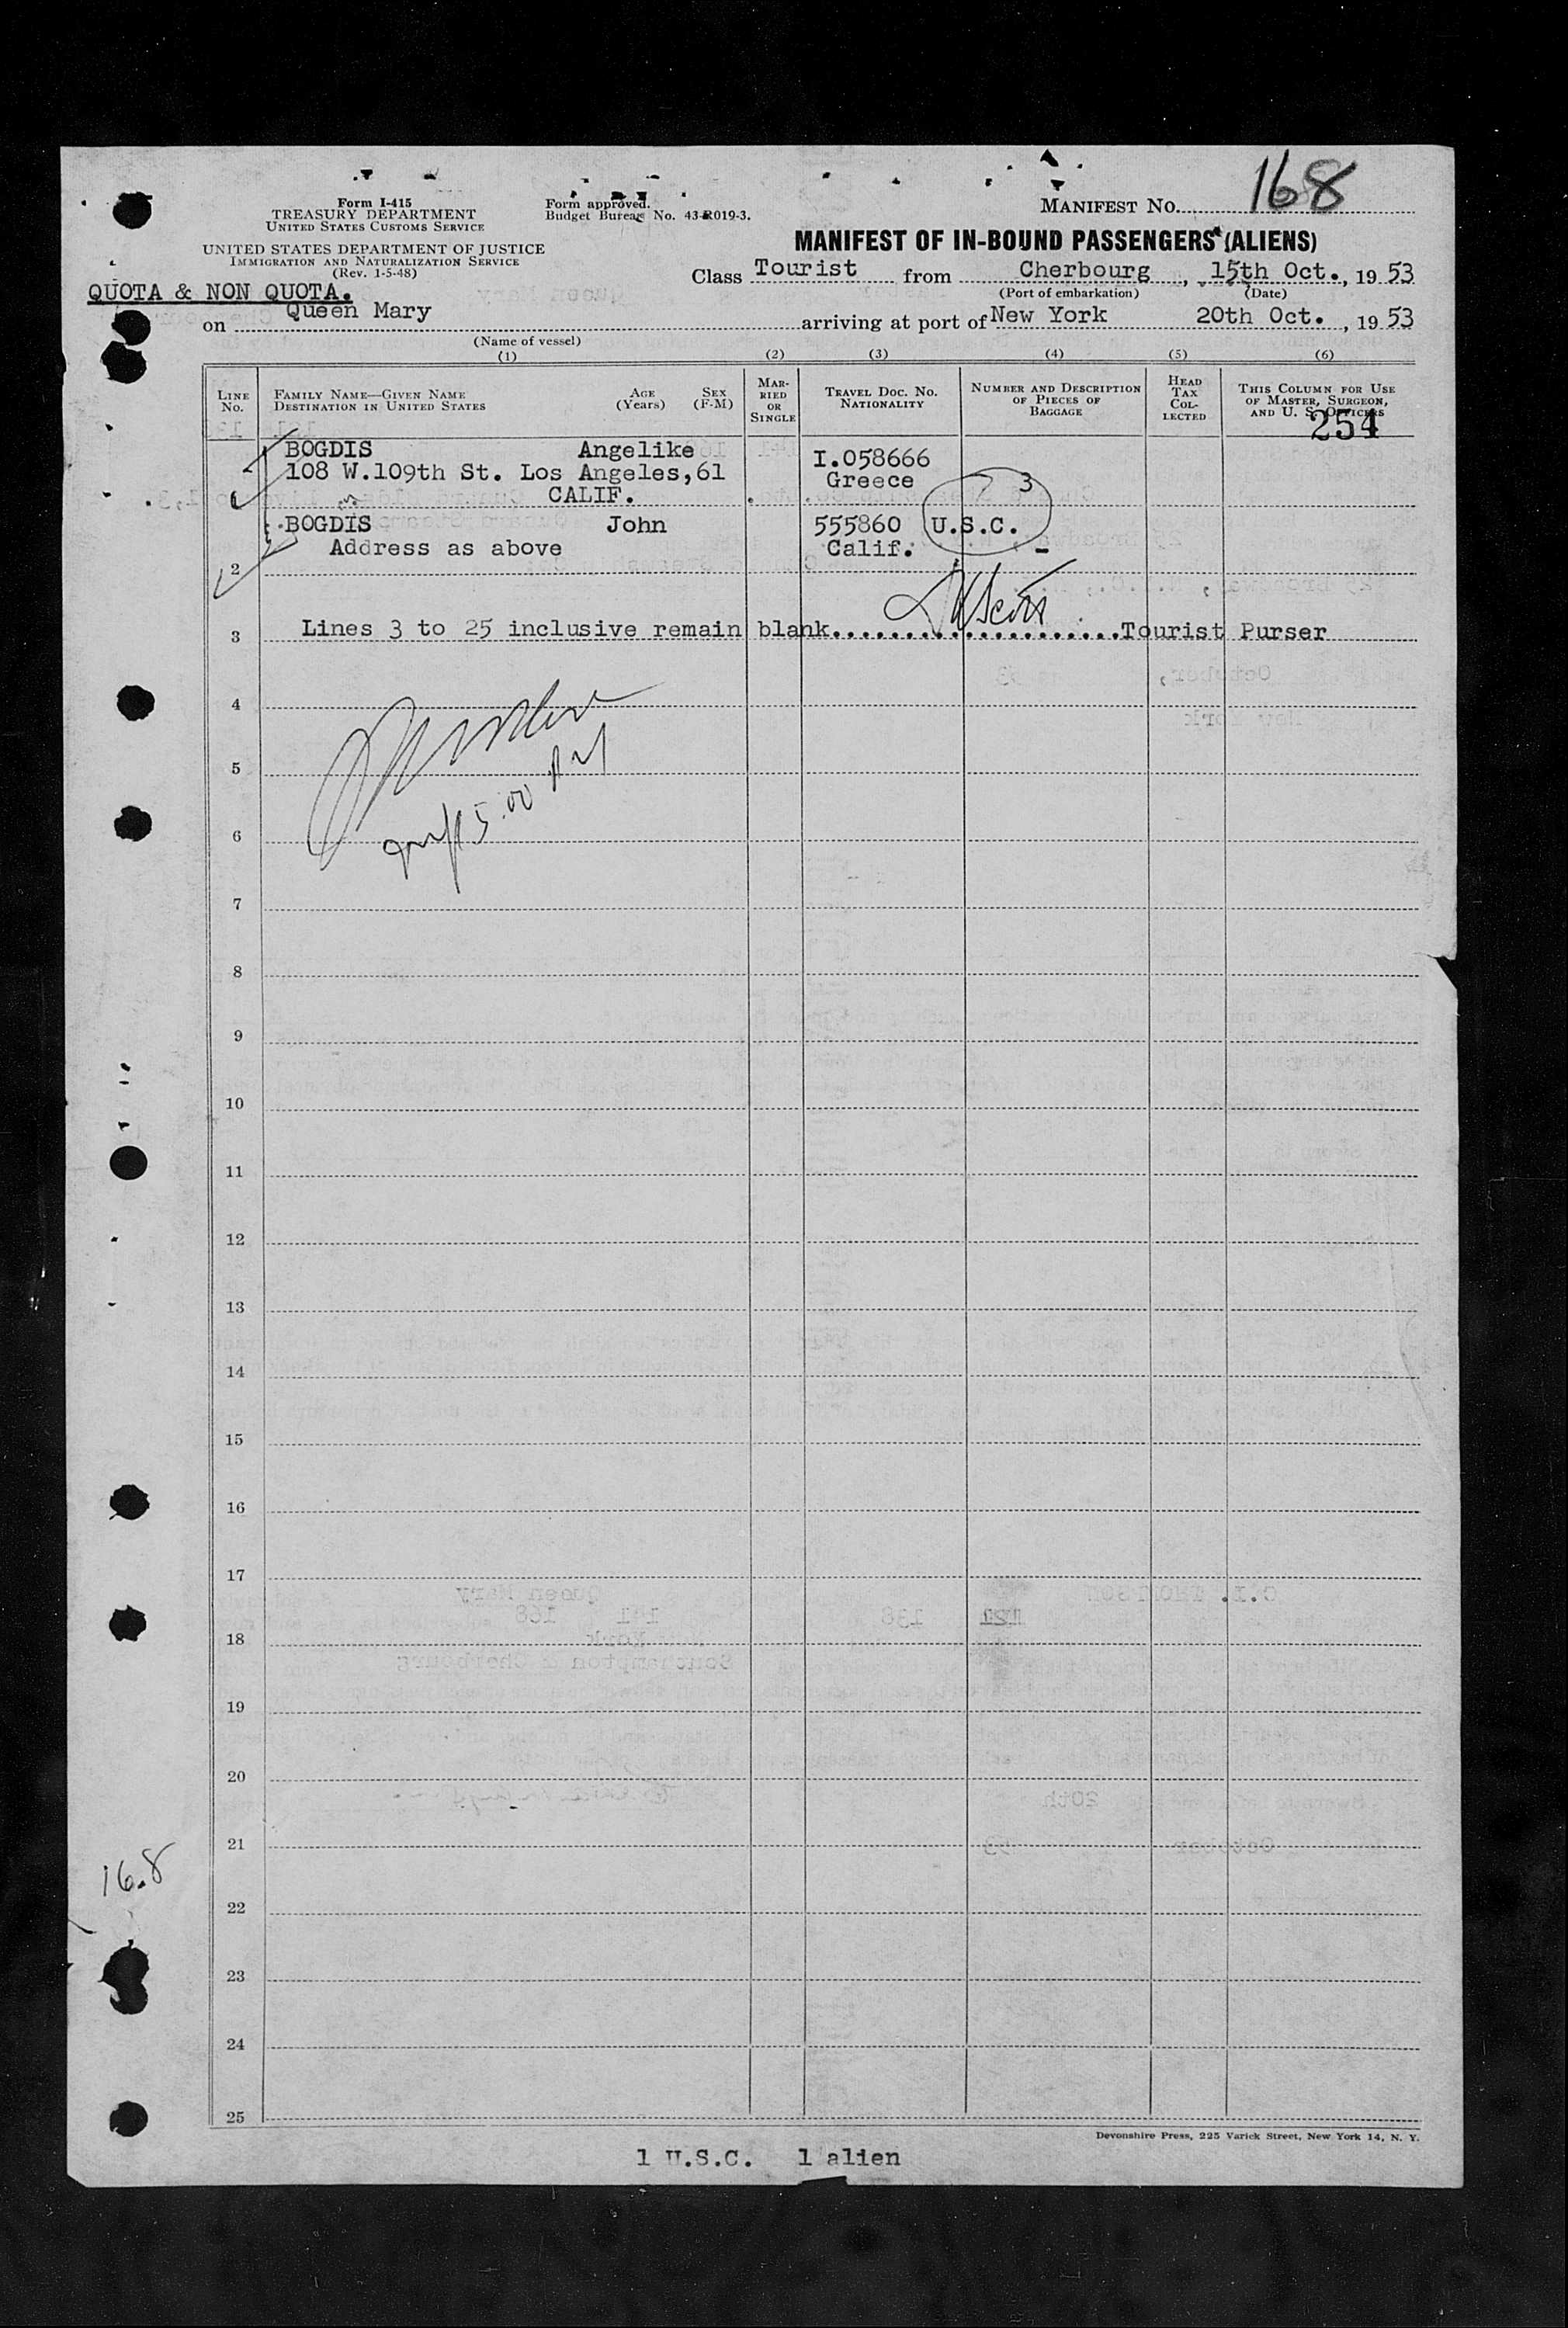 168
Form I-415
TREASURY DEPARTMENT
UNITED STATES CUSTOMS SERVICE
Form approved.
Budget Bureau No. 43-R019-3.
MANIFEST NO.
UNITED STATES DEPARTMENT OF JUSTICE
IMMIGRATION AND NATURALIZATION SERVICE
(Rev. 1-5-48)
MANIFEST OF IN-BOUND PASSENGERS (ALIENS)
Class Tourist from Cherbourg, 15th Oct., 1953
(Port of embarkation) (Date)
QUOTA & NON QUOTA.
on Queen Mary arriving at port of New York 20th Oct., 1953
(Name of vessel)
(1) (2) (3) (4) (5) (6)
LINE No.
FAMILY NAME—GIVEN NAME
DESTINATION IN UNITED STATES
AGE (Years)
SEX (F-M)
MARRIED OR SINGLE
TRAVEL DOC. NO.
NATIONALITY
NUMBER AND DESCRIPTION OF PIECES OF BAGGAGE
HEAD TAX COLLECTED
THIS COLUMN FOR USE OF MASTER, SURGEON, AND U. S. OFFICERS
254
BOGDIS Angelike I.058666
108 W.109th St. Los Angeles,61 Greece 3
1 CALIF.
BOGDIS John 555860 U.S.C.
Address as above Calif. -
2
3 Lines 3 to 25 inclusive remain blank....................Tourist Purser
4
5
6
7
8
9
10
11
12
13
14
15
16
17
18
19
20
21
168
22
23
24
25
Devonshire Press, 225 Varick Street, New York 14, N. Y.
1 U.S.C. 1 alien